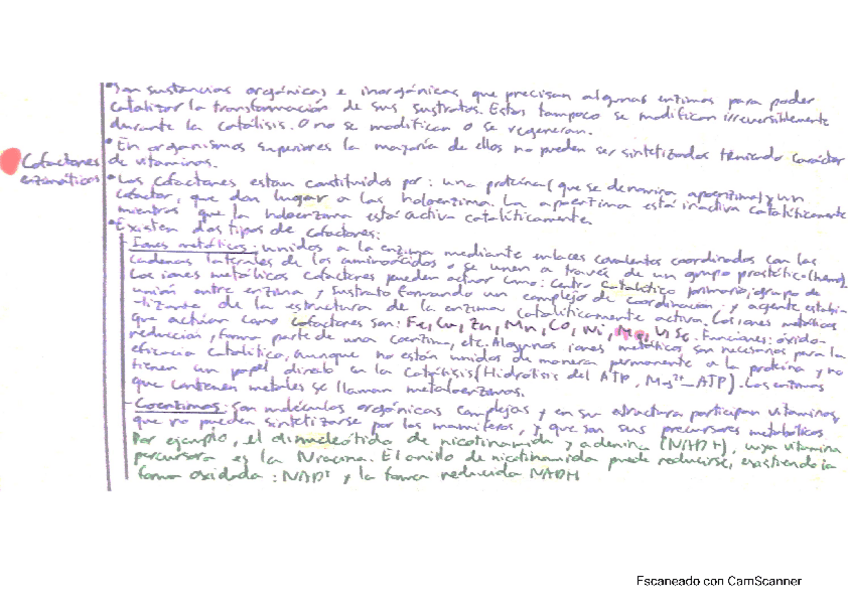 •Son sustancias orgánicas e inorgánicas que precisan algunas enzimas para poder
catalizar la transformación de sus sustratos. Estos tampoco se modifican irreversiblemente
durante la catálisis. O no se modifican o se regeneran.
•En organismos superiores la mayoría de ellos no pueden ser sintetizados teniendo carácter
de vitaminas.
Cofactores
enzimáticos
•Los cofactores estan constituidos por: una proteína (que se denomina apoenzima) y un
cofactor, que dan lugar a las holoenzima. La apoenzima está inactiva catalíticamente
mientras que la holoenzima está activa catalíticamente.
•Existen dos tipos de cofactores:
- Iones metálicos: unidos a la enzima mediante enlaces covalentes coordinados con las
cadenas laterales de los aminoácidos o se unen a través de un grupo prostético (hemo).
Los iones metálicos cofactores pueden actuar como: centro catalítico primario; grupo de
unión entre enzima y sustrato formando un complejo de coordinación; y agente estabi-
-lizante de la estructura de la enzima catalíticamente activa. Los iones metálicos
que actúan como cofactores son: Fe, Cu, Zn, Mn, Co, Ni, Mo, V, Se. Funciones: óxido-
reducción, forma parte de una coenzima, etc. Algunos iones metálicos son necesarios para la
eficacia catalítica, aunque no están unidos de manera permanente a la proteína y no
tienen un papel directo en la catálisis (Hidrólisis del ATP, Mg²⁺-ATP). Las enzimas
que contienen metales se llaman metaloenzimas.
- Coenzimas: Son moléculas orgánicas complejas y en su estructura participan vitaminas,
que no pueden sintetizarse por los mamíferos, y que son sus precursores metabólicos.
Por ejemplo, el dinucleótido de nicotinamida y adenina (NAD+), cuya vitamina
percursora es la Niacina. El anillo de nicotinamida puede reducirse, existiendo la
forma oxidada: NAD⁺ y la forma reducida NADH
Escaneado con CamScanner